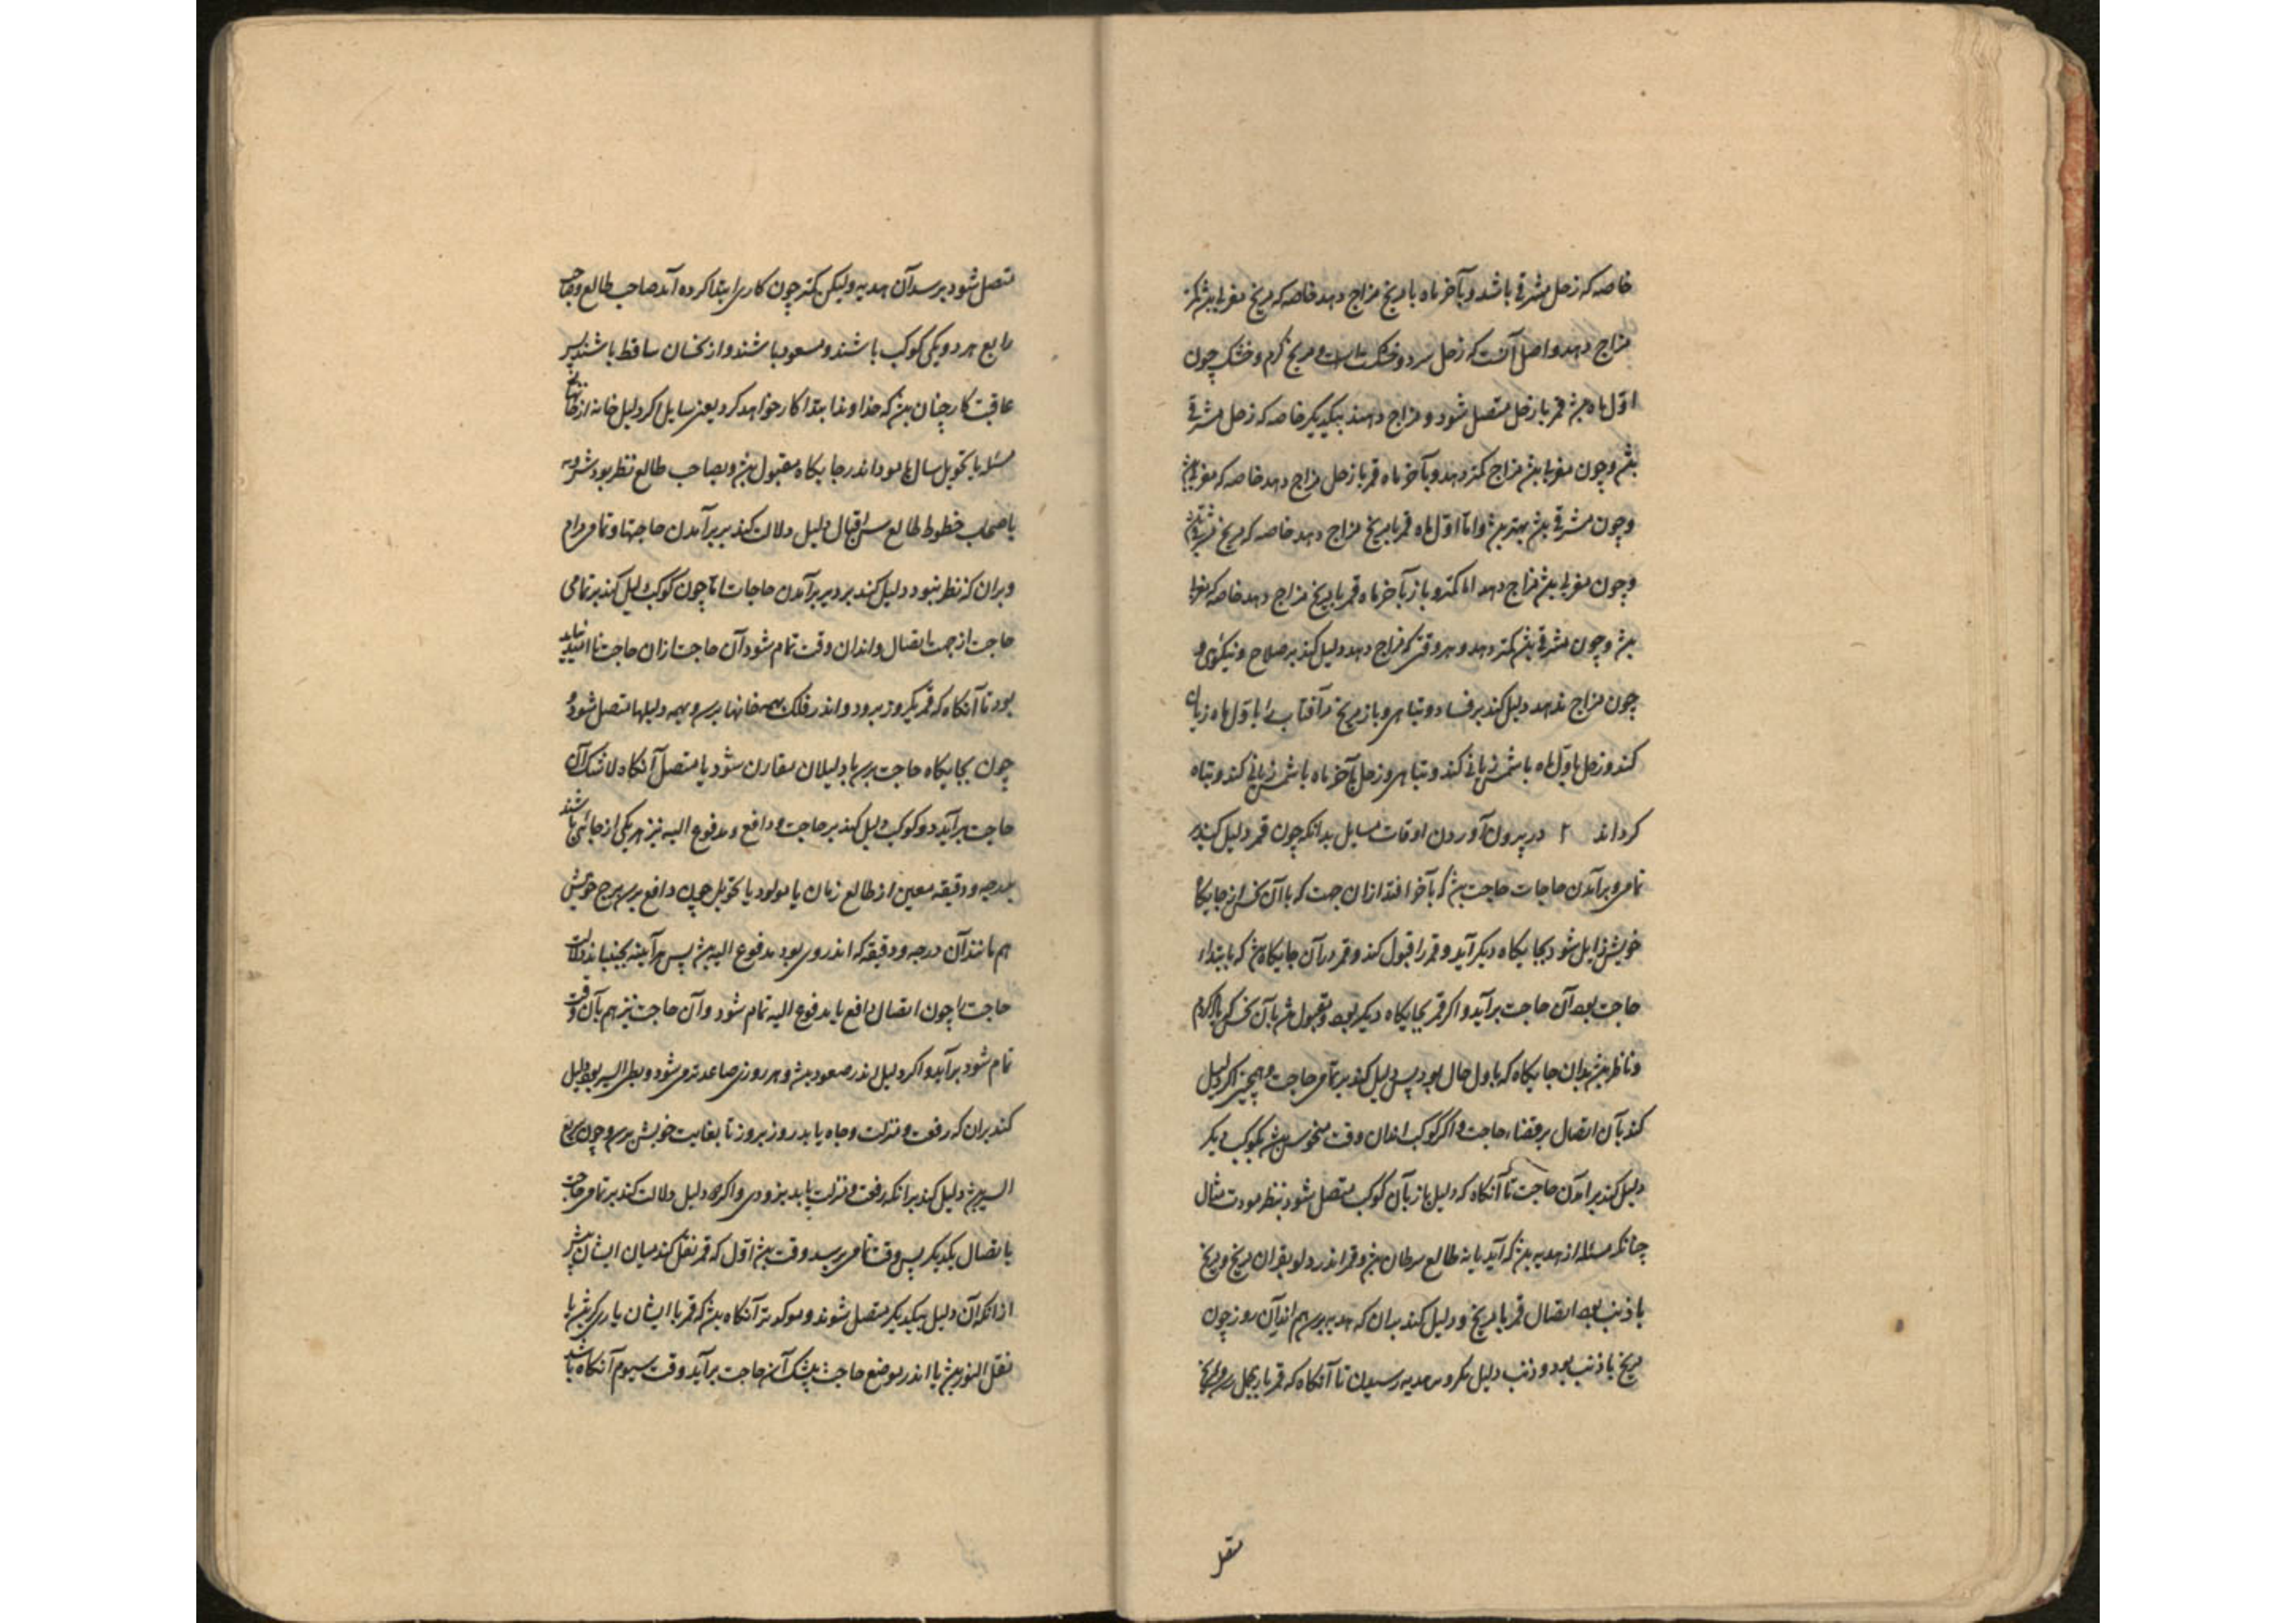 خاصه که زحل مشرقی باشد و بآخر ماه با مریخ مزاج دهد خاصه که مریخ مغربی بش
مزاج دهد و اصل آنست که زحل سرد و خشکست و مریخ گرم و خشک چون
اول ماه بش قمر با زحل متصل شود و مزاج دهند بیکدیگر خاصه که زحل مشرقی
بش و چون مغربی بش مزاج کمتر دهد و بآخر ماه قمر با زحل مزاج دهد خاصه که مغربی بش
و چون مشرقی بش بهتر بش و اما اول ماه قمر با مریخ مزاج دهد خاصه که مریخ مشرقی بش
و چون مغربی بش مزاج دهد اما کمتر و باز بآخر ماه قمر با مریخ مزاج دهد خاصه که مغربی
بش و چون مشرقی بش کمتر دهد و هر وقتی که مزاج دهد دلیل کند بر صلاح و نیکوئی و
چون مزاج ندهد دلیل کند بر فساد و تباهی و باز مریخ مر آفتاب را باول ماه زیان
کند و زحل باول ماه با شمس زیانی کند و تباهی و زحل بآخر ماه با شمس زیانی کند و تباه
کرداند ۲ در بیرون آوردن اوقات مسایل بدانکه چون قمر دلیل کند بر
تمامی و برآمدن حاجات حاجت بش که بآخر افتد ازان جهت که با آن نحس از جایگاه
خویش زایل شود بجایگاه دیگر آید و قمر را قبول کند و قمر در آن جایگاه بش که بابتداء
حاجت بود آن حاجت برآید و اگر قمر بجایگاه دیگر بود و مقبول بش بآن نحس
و ناظر بش بدان جایگاه که باول حال بود پس دلیل کند بر تمامی حاجت و همچنین اگر دلیل
کند بآن اتصال بر قضاء حاجت و اگر کوکب اندان وقت منحوس بش بکوکب دیگر
دلیل کند برآمدن حاجت تا آنگاه که دلیل باز بآن کوکب متصل شود بنظر مودت مثال
چنانکه مسئله از هدیه بش که آید یا نه طالع سرطان بش و قمر اندر دلو بقران مریخ و مریخ
با ذنب بود اتصال قمر با مریخ و دلیل کند بدان که هدیه برسد هم اندر آن روز چون
مریخ با ذنب بود و ذنب دلیل نکرد بر هدیه رسیدن تا آنگاه که قمر باز بحمل رسد و بمریخ
متصل
متصل شود برسد آن هدیه و لیکن کمتر چون کاری ابتدا کرده آید صاحب طالع و صاحب
رابع هر دو یکی کوکب باشند و مسعود باشند و از نحسان ساقط باشند پس
عاقبت کار چنان بش که خداوند ابتدا کار خواهد کرد یعنی سایل اگر دلیل خانه از خانهای
مسئله یا تحویل سال یا مولود اندر جایگاه مقبول بش و بصاحب طالع نظر بود
یا صاحب خطوط طالع دلیل دلالت کند بر برآمدن حاجتها و تمامی مرام
و بران که نظر نبود دلیل کند بر دیر برآمدن حاجات اما چون کوکب دلیل کند بر تمامی
حاجت از جهت اتصال و اندان وقت تمام شود آن حاجت ازان حاجت نا امید نباید
بود تا آنگاه که قمر یکروز برود و اندر فلک بهمه خانها برسد و بهمه دلیلها متصل شود و
چون بجایگاه حاجت برسد یا بدلیلان مقارن شود یا متصل آنگاه لا شک آن
حاجت برآید دو کوکب دلیل کند بر حاجت و دافع و مدفوع الیه نیز هر یکی از جائی باشند
بدرجه و دقیقه معین از طالع زمان یا مولود یا تحویل چون دافع برسد ببرج خویش
هم مانند آن درجه و دقیقه که اندر وی بود مدفوع الیه بش پس هرآینه بجنباند دلالت
حاجت را چون اتصال دافع با مدفوع الیه تمام شود و آن حاجت نیز هم بآن وقت
تمام شود برآید و اگر دلیل اندر صعود بش و هر روزی صاعدتر می شود و بطی السیر بود دلیل
کند بران که رفعت و منزلت و جاه یابد روز بروز تا بغایت خویش برسد و چون سریع
السیر بش دلیل کند برانکه رفعت و منزلت یابد بزودی و اگر دو دلیل دلالت کند بر تمامی حاجت
باتصال یکدیگر پس وقت تمامی برسد وقت بش اول که قمر نقل کند میان ایشان پیشتر
ازانکه آن دلیل بیکدیگر متصل شوند و موکدتر آنگاه بش که قمر با ایشان یاری گر بش یا
نقل النور بش یا اندر موضع حاجت بش بیشک آن حاجت برآید وقت سیوم آنگاه باشد